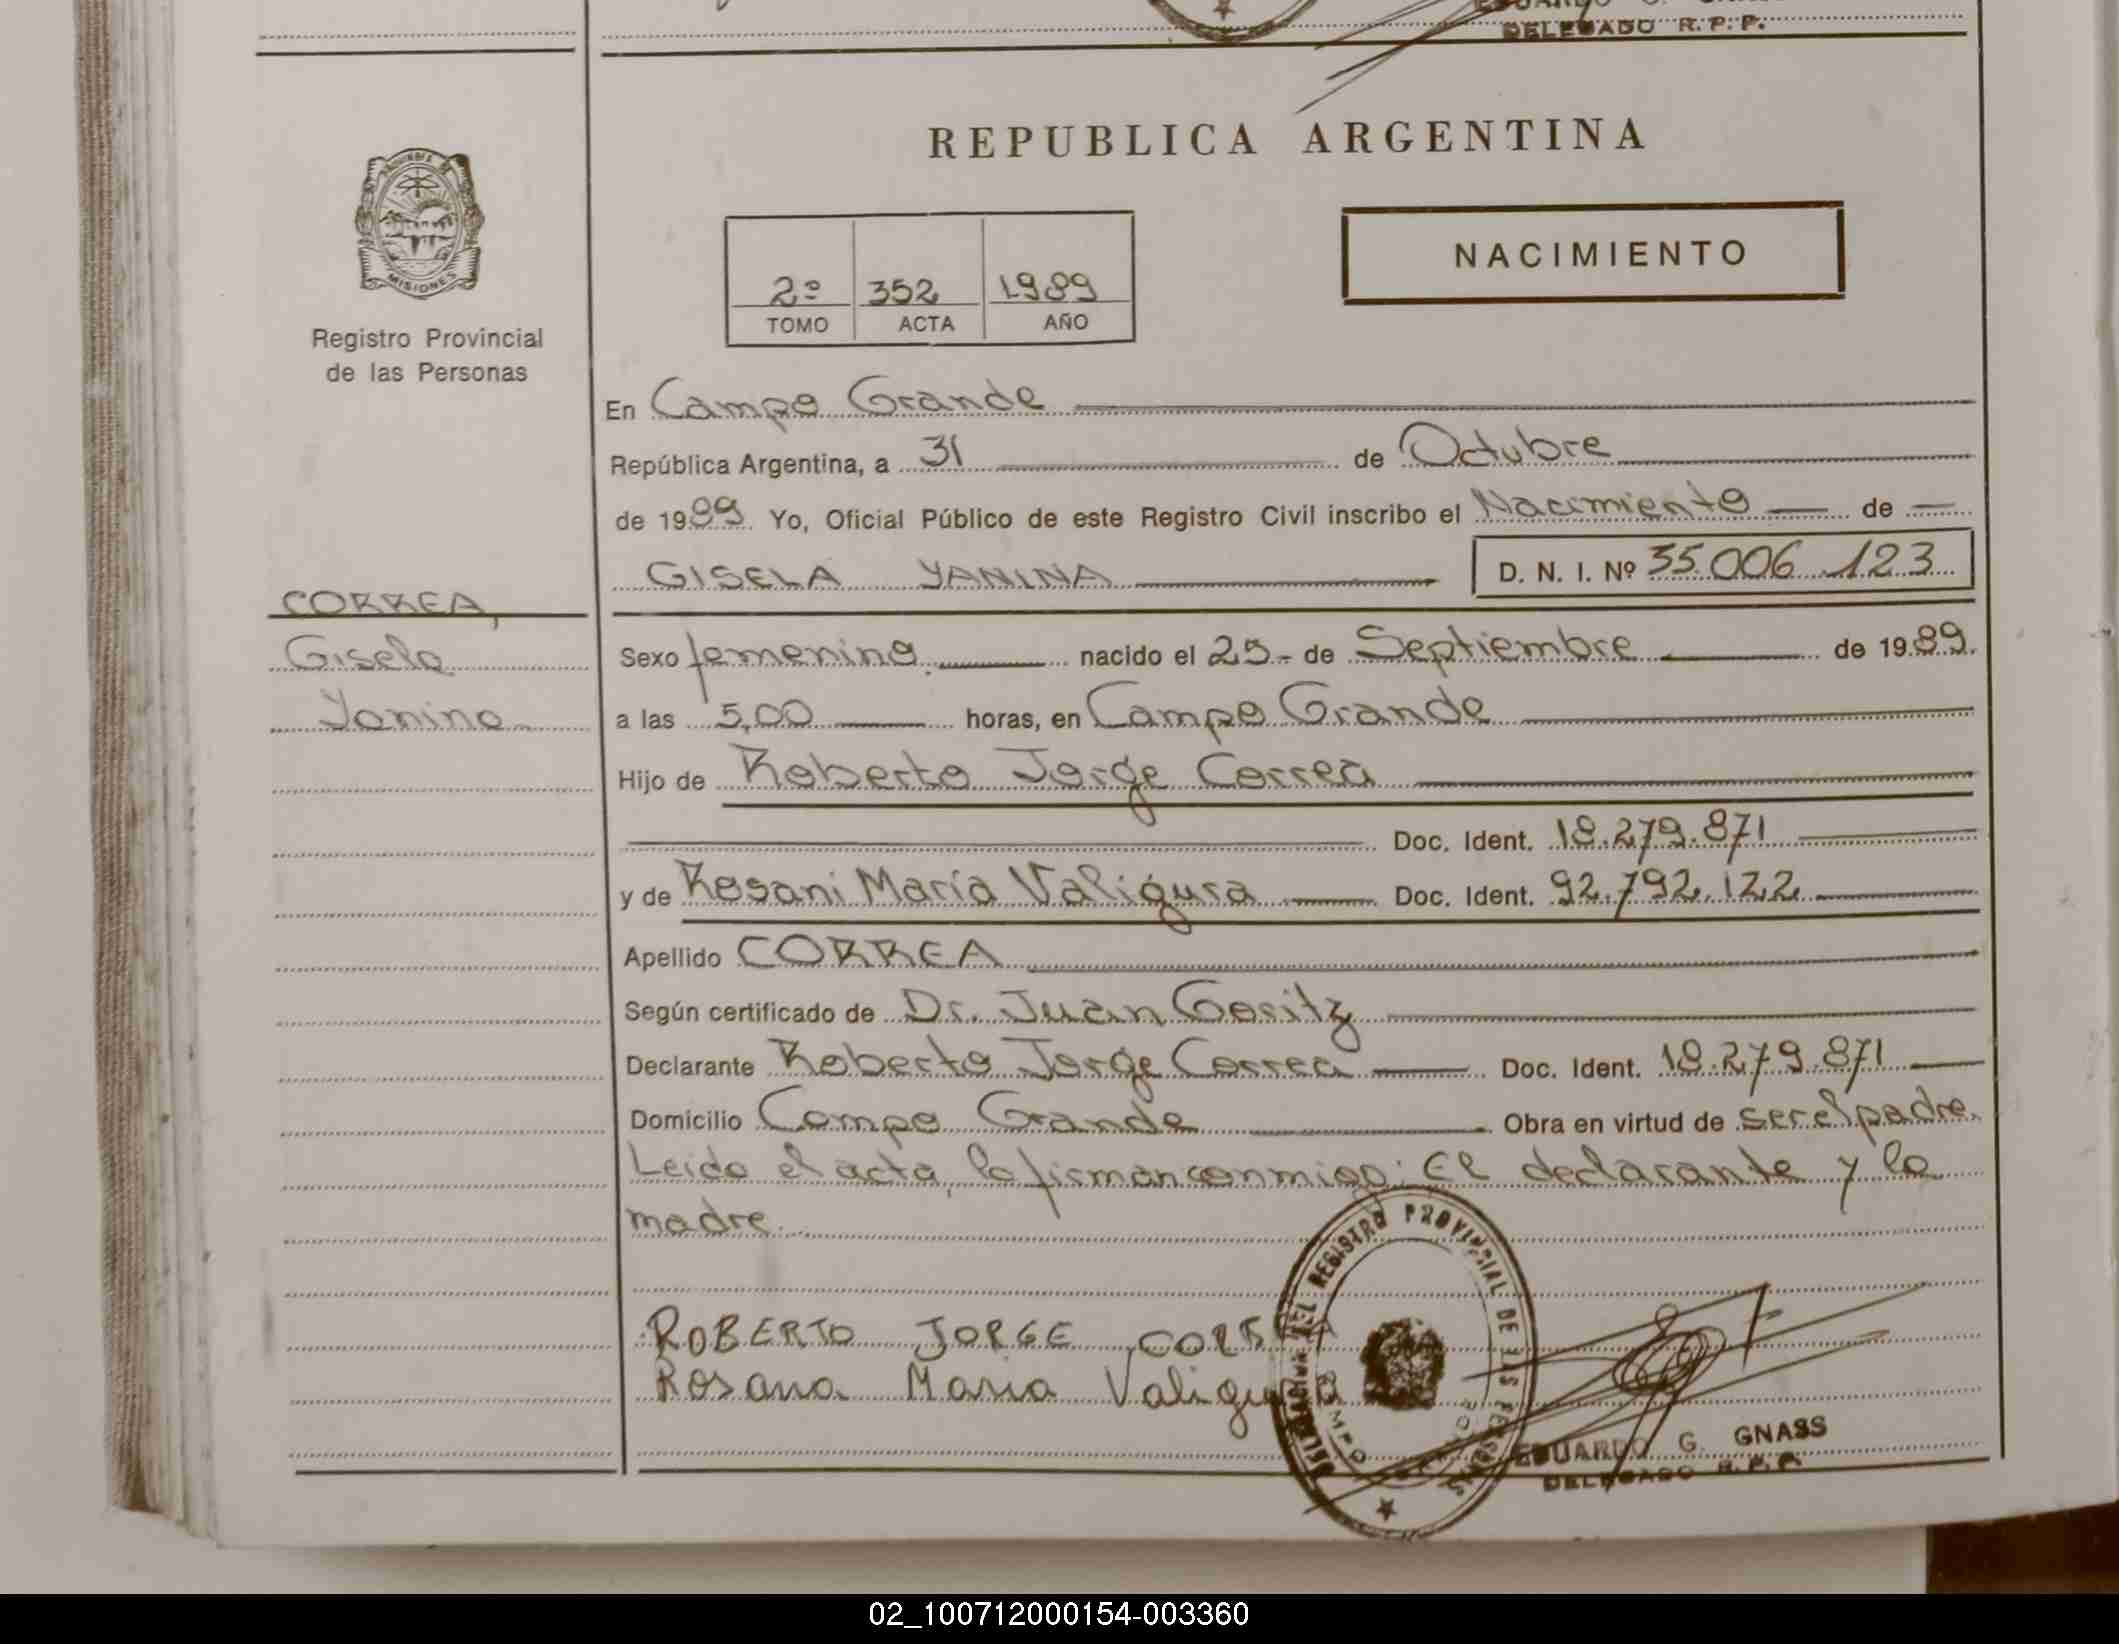 DELEGADO R.P.P.
REPUBLICA ARGENTINA
PROVINCIA DE
MISIONES
Registro Provincial
de las Personas
2º 352 1989
TOMO ACTA AÑO
NACIMIENTO
En Campo Grande
República Argentina, a 31 de Octubre
de 1989 Yo, Oficial Público de este Registro Civil inscribo el Nacimiento de
GISELA YANINA D. N. I. Nº 35.006.123
CORREA,
Gisela
Yanina
Sexo femenino nacido el 25 de Septiembre de 1989.
a las 5,00 horas, en Campo Grande
Hijo de Roberto Jorge Correa
Doc. Ident. 18.279.871
y de Rosani María Valigura Doc. Ident. 92.792.122
Apellido CORREA
Según certificado de Dr. Juan Gositz
Declarante Roberto Jorge Correa Doc. Ident. 18.279.871
Domicilio Campo Grande Obra en virtud de ser el padre.
Leída el acta, la firman conmigo: El declarante y la
madre.
ROBERTO JORGE CORREA
Rosana Maria Valigu
DELEGACION DEL REGISTRO PROVINCIAL DE LAS PERSONAS
CAMPO GRANDE
EDUARDO G. GNASS
DELEGADO R.P.P.
02_100712000154-003360